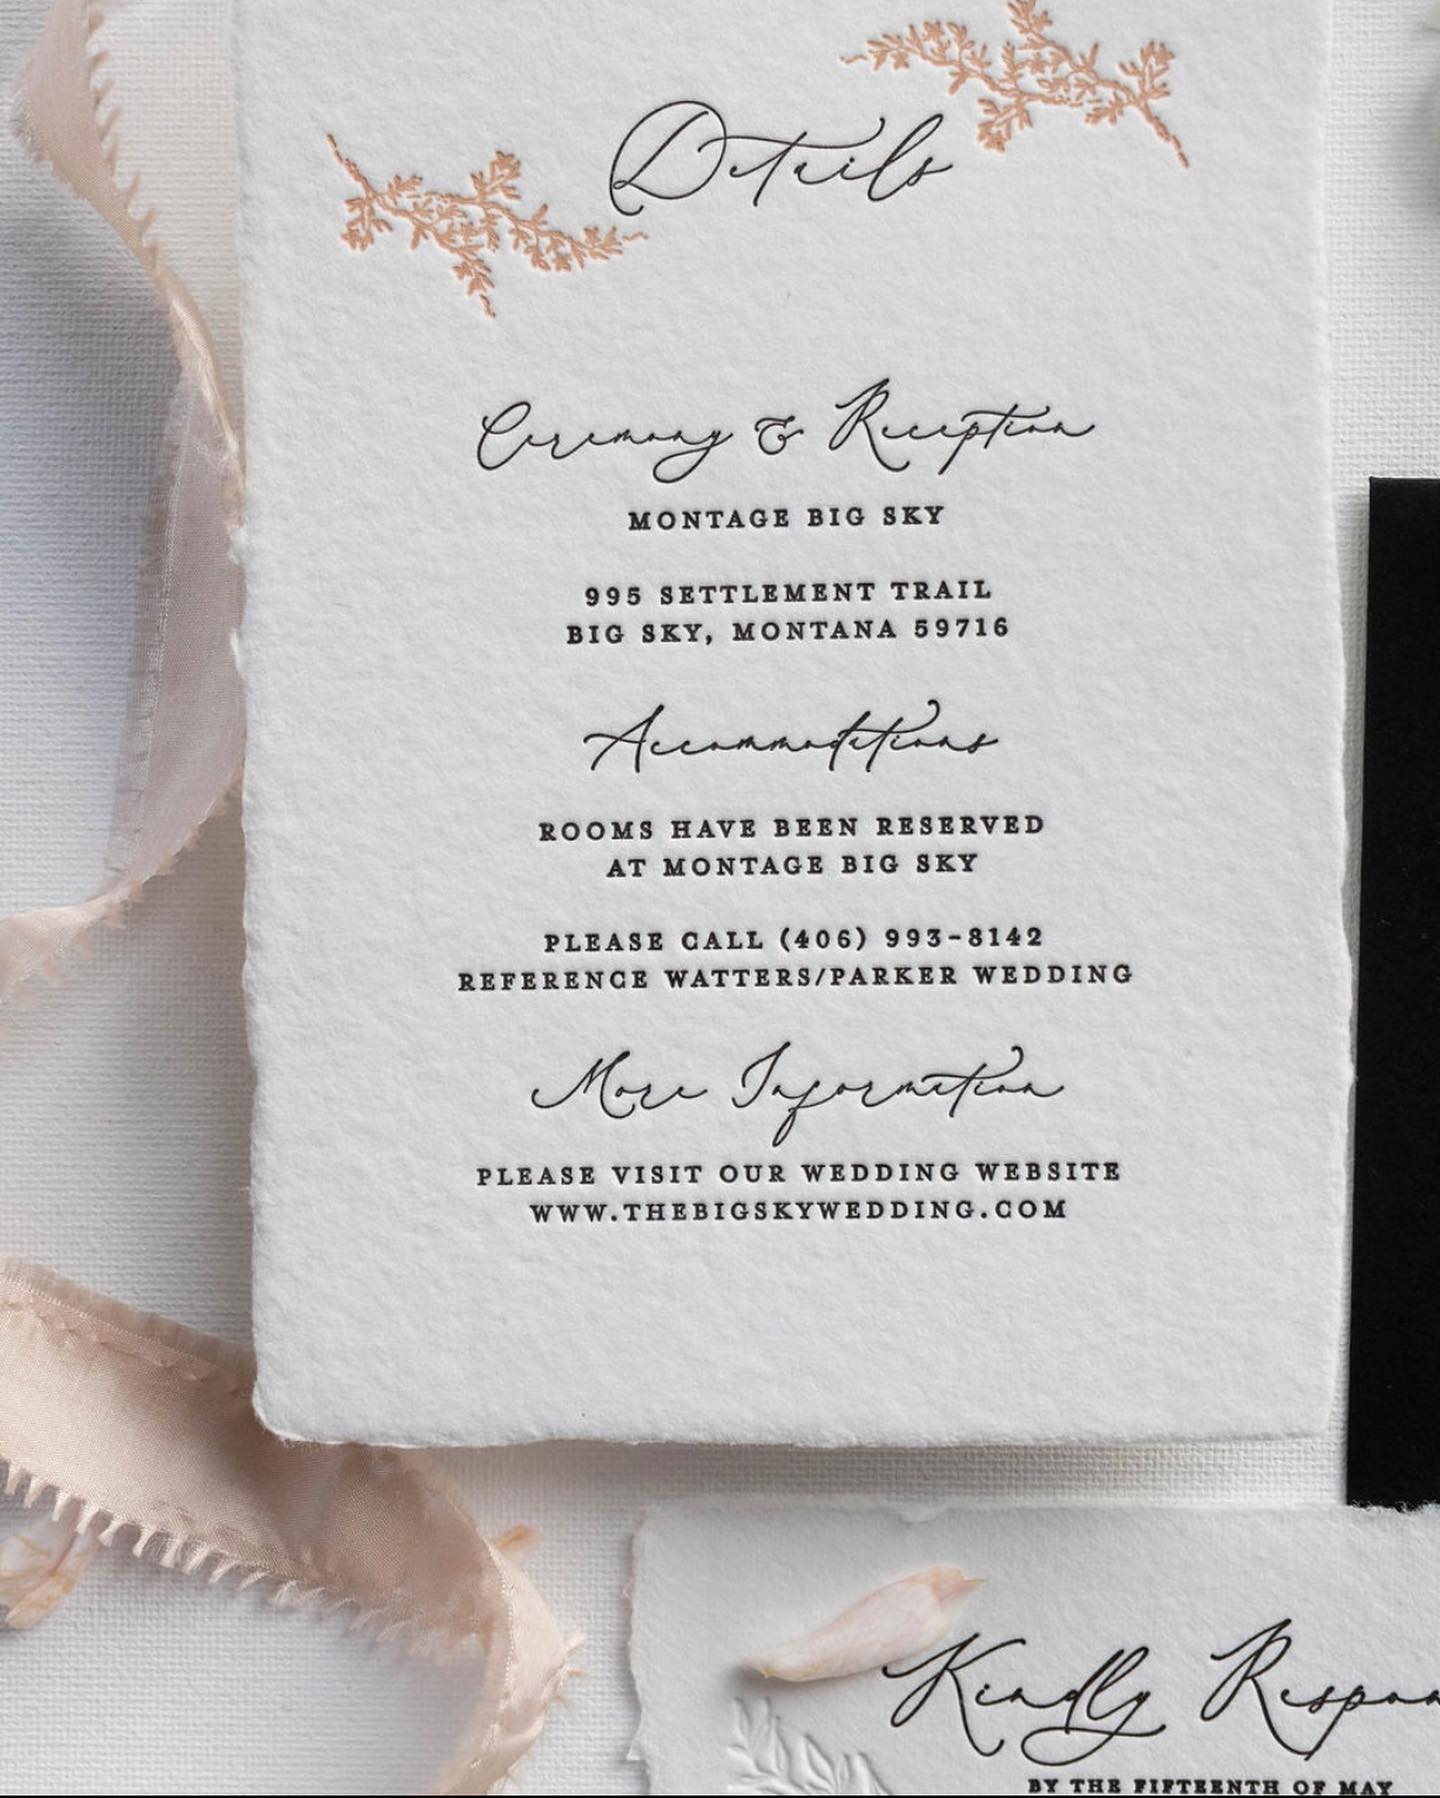 Details
Ceremony & Reception
MONTAGE BIG SKY
995 SETTLEMENT TRAIL
BIG SKY, MONTANA 59716
Accommodations
ROOMS HAVE BEEN RESERVED
AT MONTAGE BIG SKY
PLEASE CALL (406) 993-8142
REFERENCE WATTERS/PARKER WEDDING
More Information
PLEASE VISIT OUR WEDDING WEBSITE
WWW.THEBIGSKYWEDDING.COM
Kindly Respon
BY THE FIFTEENTH OF MAY